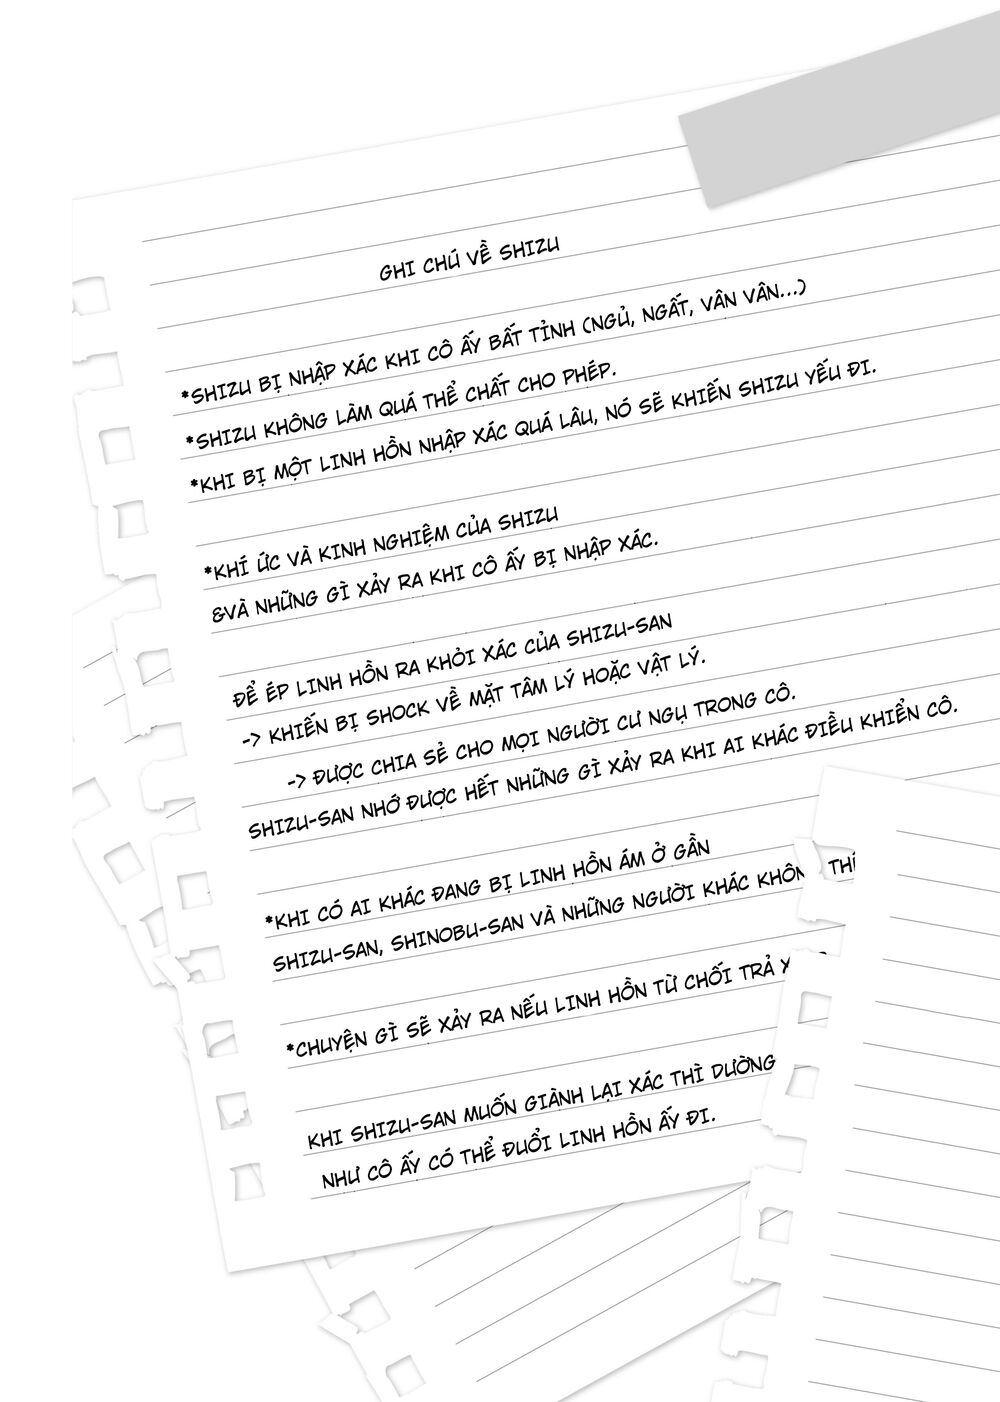 GHI CHÚ VỀ SHIZU
*SHIZU BỊ NHẬP XÁC KHI CÔ ẤY BẤT TỈNH (NGỦ, NGẤT, VÂN VÂN...)
*SHIZU KHÔNG LÀM QUÁ THỂ CHẤT CHO PHÉP.
*KHI BỊ MỘT LINH HỒN NHẬP XÁC QUÁ LÂU, NÓ SẼ KHIẾN SHIZU YẾU ĐI.
*KHÍ ỨC VÀ KINH NGHIỆM CỦA SHIZU
&VÀ NHỮNG GÌ XẢY RA KHI CÔ ẤY BỊ NHẬP XÁC.
ĐỂ ÉP LINH HỒN RA KHỎI XÁC CỦA SHIZU-SAN
-> KHIẾN BỊ SHOCK VỀ MẶT TÂM LÝ HOẶC VẬT LÝ.
-> ĐƯỢC CHIA SẺ CHO MỌI NGƯỜI CƯ NGỤ TRONG CÔ.
SHIZU-SAN NHỚ ĐƯỢC HẾT NHỮNG GÌ XẢY RA KHI AI KHÁC ĐIỀU KHIỂN CÔ.
*KHI CÓ AI KHÁC ĐANG BỊ LINH HỒN ÁM Ở GẦN
SHIZU-SAN, SHINOBU-SAN VÀ NHỮNG NGƯỜI KHÁC KHÔNG
*CHUYỆN GÌ SẼ XẢY RA NẾU LINH HỒN TỪ CHỐI TRẢ
KHI SHIZU-SAN MUỐN GIÀNH LẠI XÁC THÌ DƯỜNG
NHƯ CÔ ẤY CÓ THỂ ĐUỔI LINH HỒN ẤY ĐI.